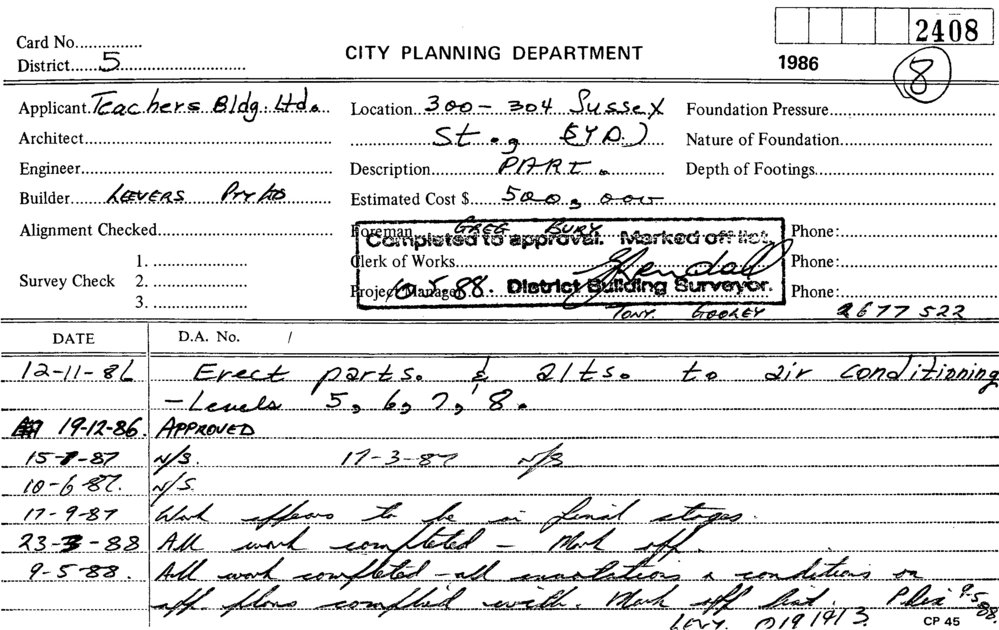 2408
Card No...............
CITY PLANNING DEPARTMENT
District......5..............................
1986
8
Applicant Teachers Bldg. Ltd.
Location 300-304 Sussex
Foundation Pressure
Architect
St., SYD.)
Nature of Foundation
Engineer
Description PART.
Depth of Footings
Builder LEEVERS Pty Ltd
Estimated Cost $ 500,000
Alignment Checked
Foreman GREG BURY
Phone:
Completed to approval. Marked off list.
Clerk of Works
Phone:
Survey Check
1.
2.
3.
Project Manager
6 5 88. District Building Surveyor.
Phone:
TONY GOOLEY 2677 522
DATE D.A. No. /
12-11-86 Erect parts. & alts. to air conditioning
-Levels 5, 6, 7, '8.
19-12-86. APPROVED
15-1-87 N/S. 17-3-87 N/S
10-6-87. N/S.
17-9-87 Work appears to be in final stages.
23-3-88 All work completed - Mark off.
9-5-88. All work completed - all annotations & conditions on
app. plans complied with. Mark off list. 9-5-88.
LEVY. 019191 3. CP 45